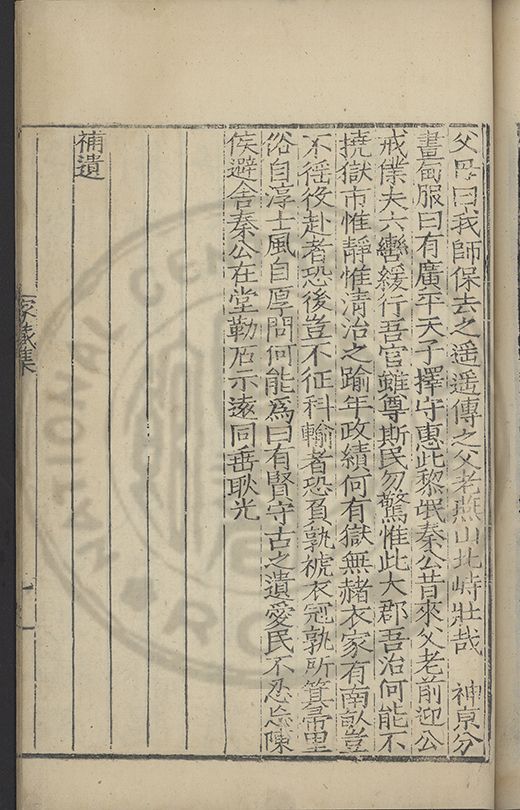 父母曰我師保去之遥遥傳之父老燕山北峙壯哉　神京分
畫甸服曰有廣平天子擇守惠此黎氓秦公昔來父老前迎公
戒僕夫六轡緩行吾官雖尊斯民勿驚惟此大郡吾治何能不
撓獄市惟靜惟清治之踰年政績何有獄無赭衣家有南畝豈
不徭役赴者恐後豈不征科輸者恐負孰褫衣冠孰所箕帚里
俗自淳士風自厚問何能爲曰有賢守古之遺愛民不忍忘陳
侯避舍秦公在堂勒石示遠同垂耿光
補遺
家藏集